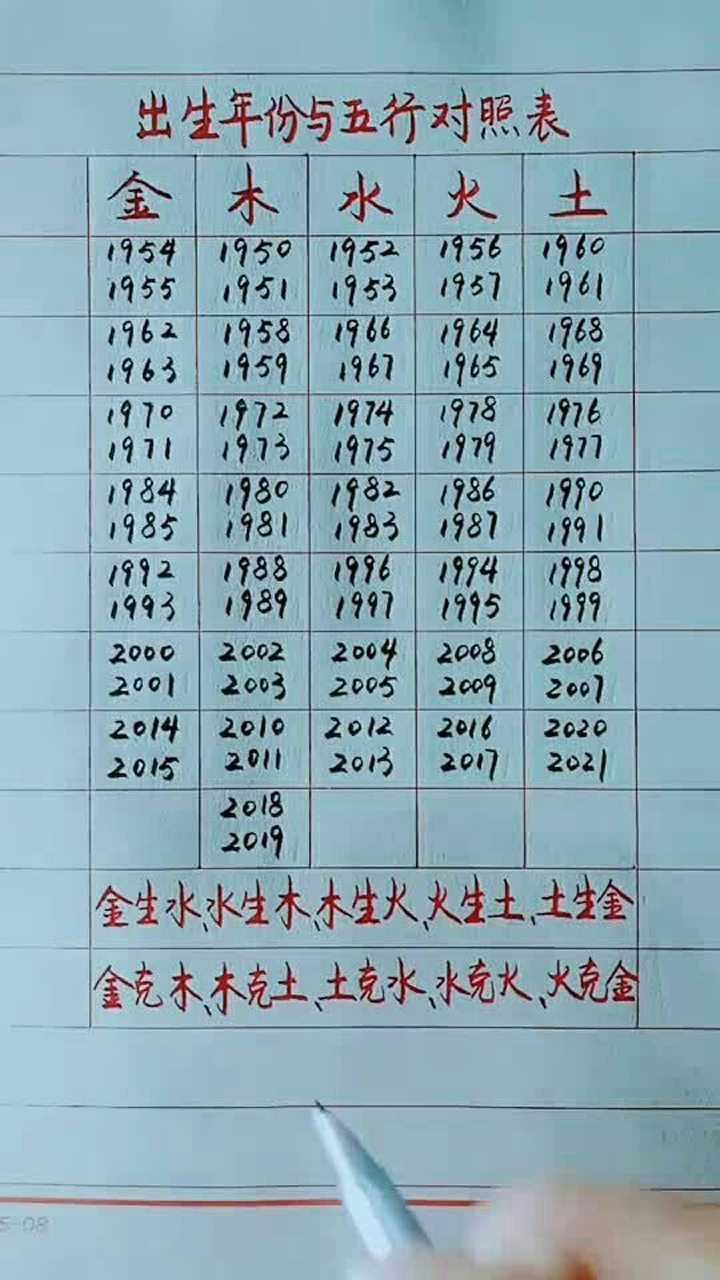 出生年份与五行对照表
金 木 水 火 土
1954 1950 1952 1956 1960
1955 1951 1953 1957 1961
1962 1958 1966 1964 1968
1963 1959 1967 1965 1969
1970 1972 1974 1978 1976
1971 1973 1975 1979 1977
1984 1980 1982 1986 1990
1985 1981 1983 1987 1991
1992 1988 1996 1994 1998
1993 1989 1997 1995 1999
2000 2002 2004 2008 2006
2001 2003 2005 2009 2007
2014 2010 2012 2016 2020
2015 2011 2013 2017 2021
2018
2019
金生水、水生木、木生火、火生土、土生金
金克木、木克土、土克水、水克火、火克金
5-08